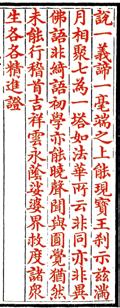 説一義諦一毫端之上能現寶王刹示茲滿
月相聚七為一塔如法華所云非同亦非異
佛語非綺語初學亦能曉聲聞與圓覺猶然
未能行稽首吉祥雲永蔭娑婆界救度諸衆
生各各精進證